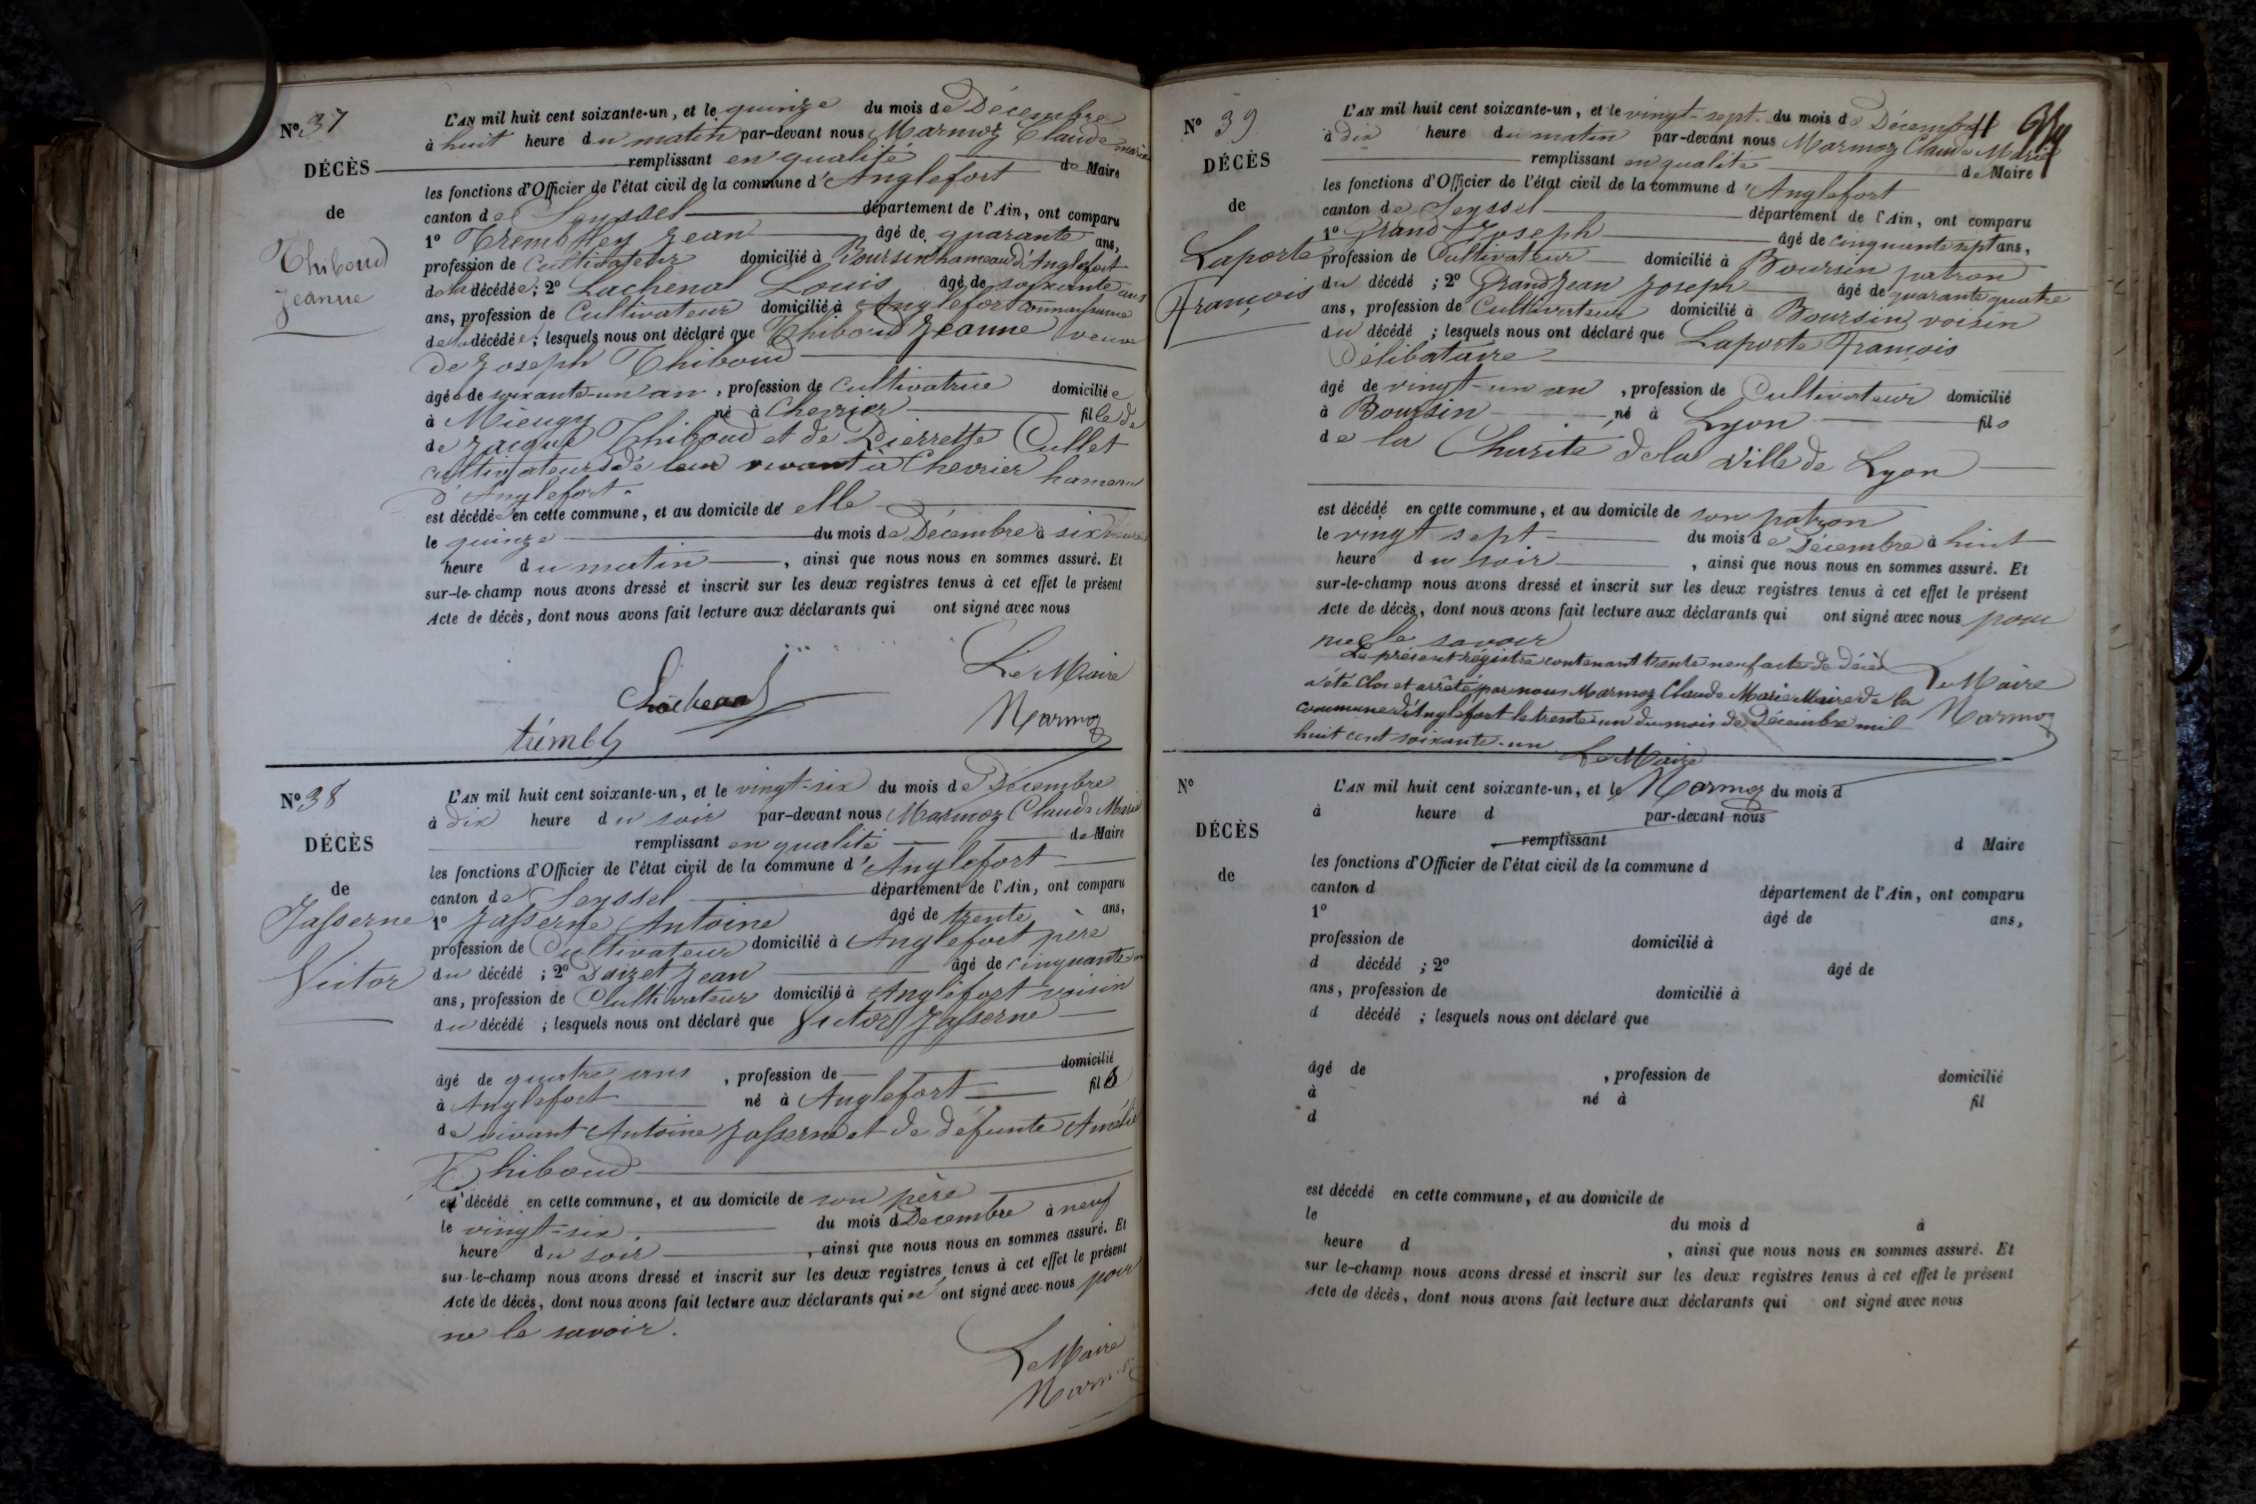 N° 37
DÉCÈS
de
Thiboud
Jeanne
L'AN mil huit cent soixante-un, et le quinze du mois de Décembre
à huit heure du matin par-devant nous Marmoz Claude Marie
remplissant en qualité de Maire
les fonctions d'Officier de l'état civil de la commune d'Anglefort
canton de Seyssel département de l'Ain, ont comparu
1° Trembley Jean âgé de quarante ans,
profession de Cultivateur domicilié à Boursin hameau d'Anglefort
de la décédée; 2° Lachenal Louis âgé de soixante ans
ans, profession de Cultivateur domicilié à Anglefort
de la décédée; lesquels nous ont déclaré que Thiboud Jeanne veuve
de Joseph Thiboud
âgée de soixante-un an, profession de Cultivatrice domiciliée
à Mieugy né à Chevrier fille de
de Jacque Thiboud et de Pierrette Cullet
cultivateurs de leur vivant à Chevrier hameau
d'Anglefort.
est décédée en cette commune, et au domicile de elle
le quinze du mois de Décembre à six heures
heure du matin, ainsi que nous nous en sommes assuré. Et
sur-le-champ nous avons dressé et inscrit sur les deux registres tenus à cet effet le présent
Acte de décès, dont nous avons fait lecture aux déclarants qui ont signé avec nous
Le Maire
Lachenal
Marmoz
trembley
N° 38
DÉCÈS
de
Jasserne
Victor
L'AN mil huit cent soixante-un, et le vingt-six du mois de Décembre
à dix heure du soir par-devant nous Marmoz Claude Marie
remplissant en qualité de Maire
les fonctions d'Officier de l'état civil de la commune d'Anglefort
canton de Seyssel département de l'Ain, ont comparu
1° Jasserne Antoine âgé de trente ans,
profession de Cultivateur domicilié à Anglefort père
du décédé; 2° Daizet Jean âgé de cinquante
ans, profession de Cultivateur domicilié à Anglefort voisin
du décédé; lesquels nous ont déclaré que Victor Jasserne
âgé de quatre ans, profession de domicilié
à Anglefort né à Anglefort fils
de vivant Antoine Jasserne et de défunte Amélie
Thiboud
est décédé en cette commune, et au domicile de son père
le vingt-six. du mois d Décembre à neuf
heure du soir, ainsi que nous nous en sommes assuré. Et
sur-le-champ nous avons dressé et inscrit sur les deux registres tenus à cet effet le présent
Acte de décès, dont nous avons fait lecture aux déclarants qui ont signé avec nous pour
ne le savoir.
Le Maire
Marmoz
N° 39
DÉCÈS
de
Laporte
François
L'AN mil huit cent soixante-un, et le vingt-sept du mois de Décembre
à dix heure du matin par-devant nous Marmoz Claude Marie
remplissant en qualité de Maire
les fonctions d'Officier de l'état civil de la commune d'Anglefort
canton de Seyssel département de l'Ain, ont comparu
1° Grand Joseph âgé de cinquante sept ans,
profession de Cultivateur domicilié à Boursin patron
du décédé; 2° Grandjean Joseph âgé de quarante quatre
ans, profession de Cultivateur domicilié à Boursin voisin
du décédé; lesquels nous ont déclaré que Laporte François
Célibataire
âgé de vingt-un an, profession de Cultivateur domicilié
à Boursin, né à Lyon fils
de la Charité de la Ville de Lyon
est décédé en cette commune, et au domicile de son patron
le vingt sept du mois de Décembre à huit
heure du soir, ainsi que nous nous en sommes assuré. Et
sur-le-champ nous avons dressé et inscrit sur les deux registres tenus à cet effet le présent
Acte de décès, dont nous avons fait lecture aux déclarants qui ont signé avec nous pour
ne le savoir
Le Maire
Marmoz
Le présent régistre contenant trente neuf acte de décès
a été clos et arrêté par nous Marmoz Claude Marie Maire de la
commune d'Anglefort le trente un du mois de Décembre mil
huit cent soixante-un
Le Maire
Marmoz
N°
DÉCÈS
de
L'AN mil huit cent soixante-un, et le du mois d
à heure d par-devant nous
remplissant d Maire
les fonctions d'Officier de l'état civil de la commune d
canton d département de l'Ain, ont comparu
1° âgé de ans,
profession de domicilié à
d décédé ; 2° âgé de
ans, profession de domicilié à
d décédé ; lesquels nous ont déclaré que
âgé de , profession de domicilié
à né à fil
d
est décédé en cette commune, et au domicile de
le du mois d à
heure d , ainsi que nous nous en sommes assuré. Et
sur le-champ nous avons dressé et inscrit sur les deux registres tenus à cet effet le présent
Acte de décès, dont nous avons fait lecture aux déclarants qui ont signé avec nous